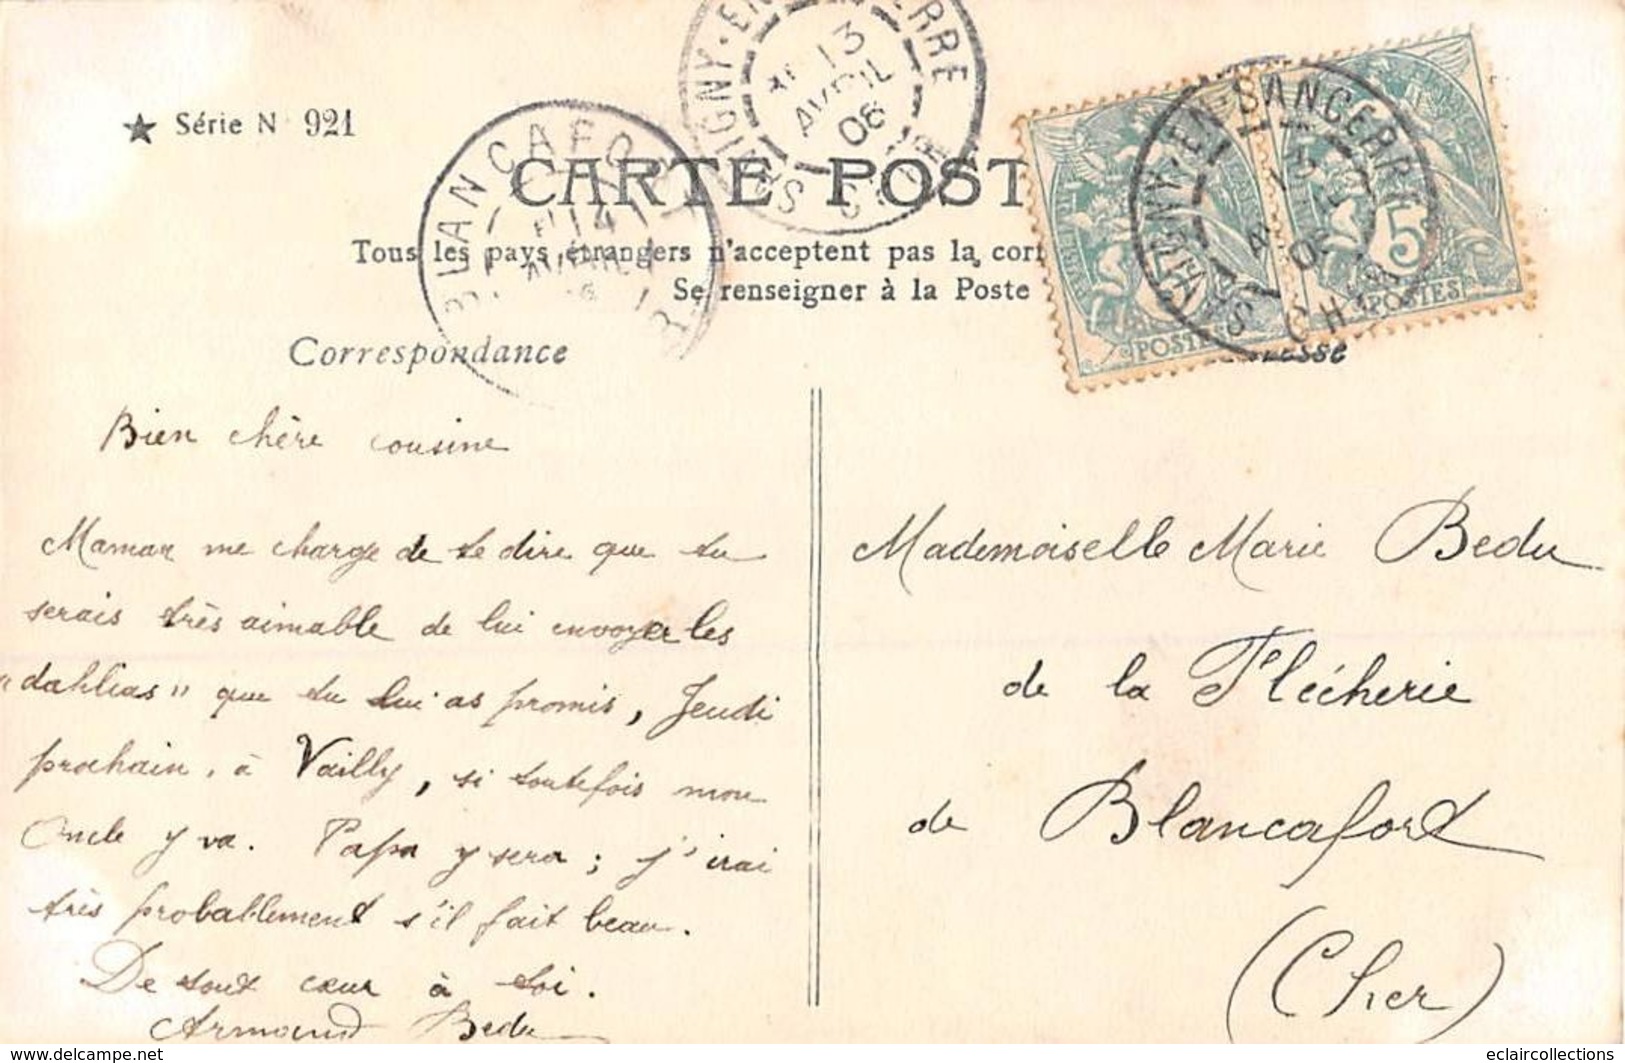 ★ Série N 921
CARTE POST
Tous les pays étrangers n'acceptent pas la corr
Se renseigner à la Poste
Correspondance
Bien chère cousine
Maman me charge de te dire que tu
serais très aimable de lui envoyer les
"dahlias" que tu lui as promis, Jeudi
prochain, à Vailly, si toutefois mon
Oncle y va. Papa y sera ; j'irai
très probablement s'il fait beau.
De tout cœur à toi.
Armand Bedu
Mademoiselle Marie Bedu
de la Flécherie
de Blancafort
(Cher)
13
AVRIL
08
14
AVRIL
SANCERRE
5
POSTES
POSTES
www.delcampe.net
eclaircollections